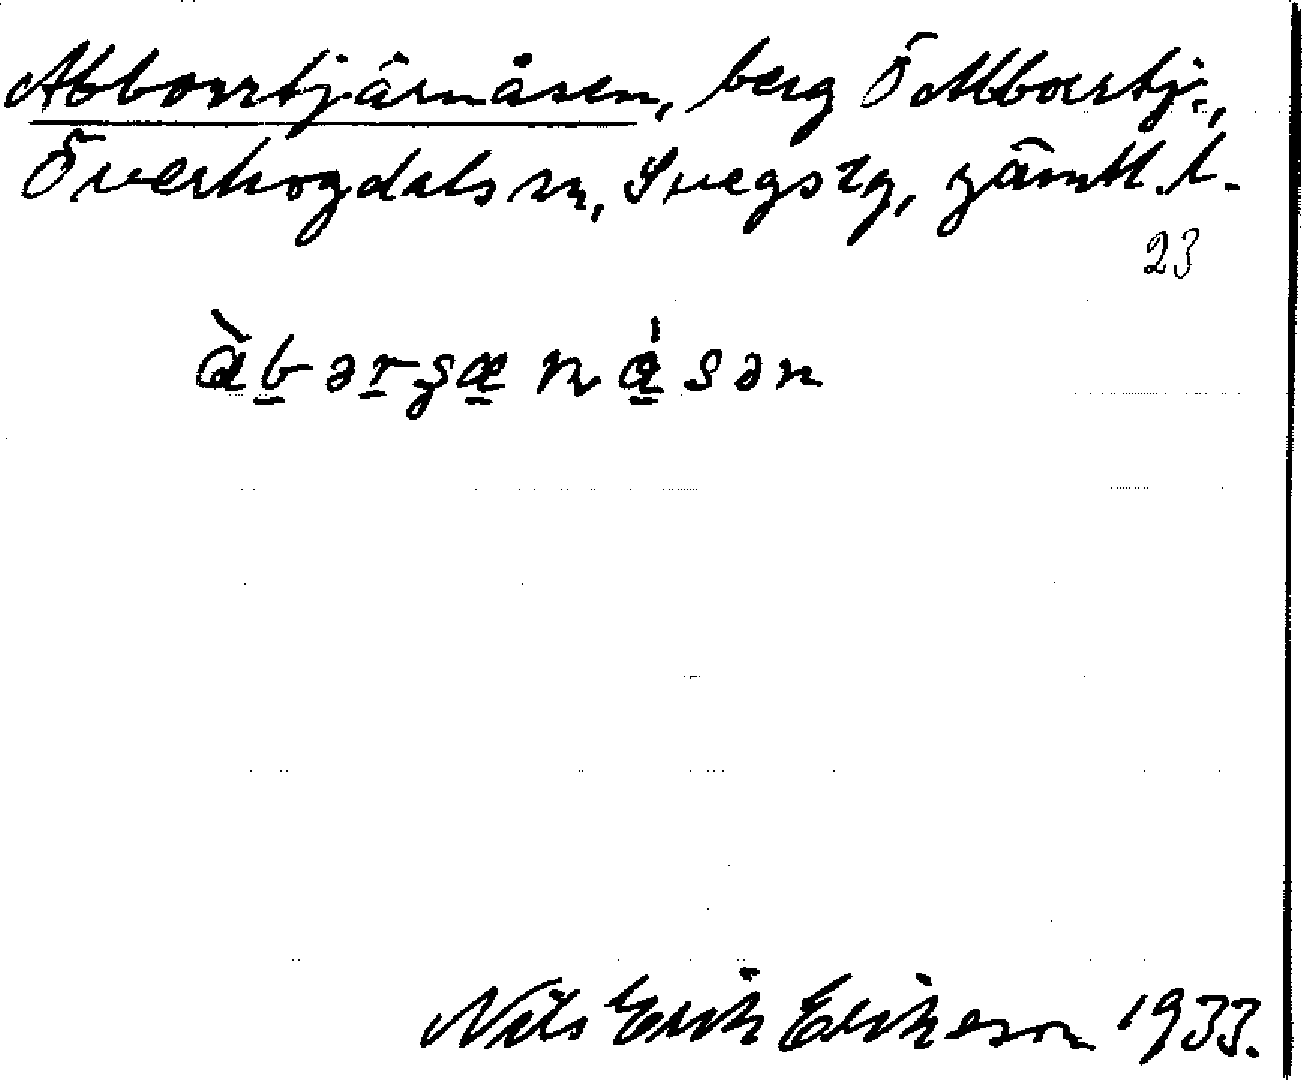 Abborrtjärnåsen, berg Ö Abborrtj.,
Överhogdals sn, Svegs tg, Jämtl. l.
23
àbərʂænásən
Nils Erik Erikson 1933.